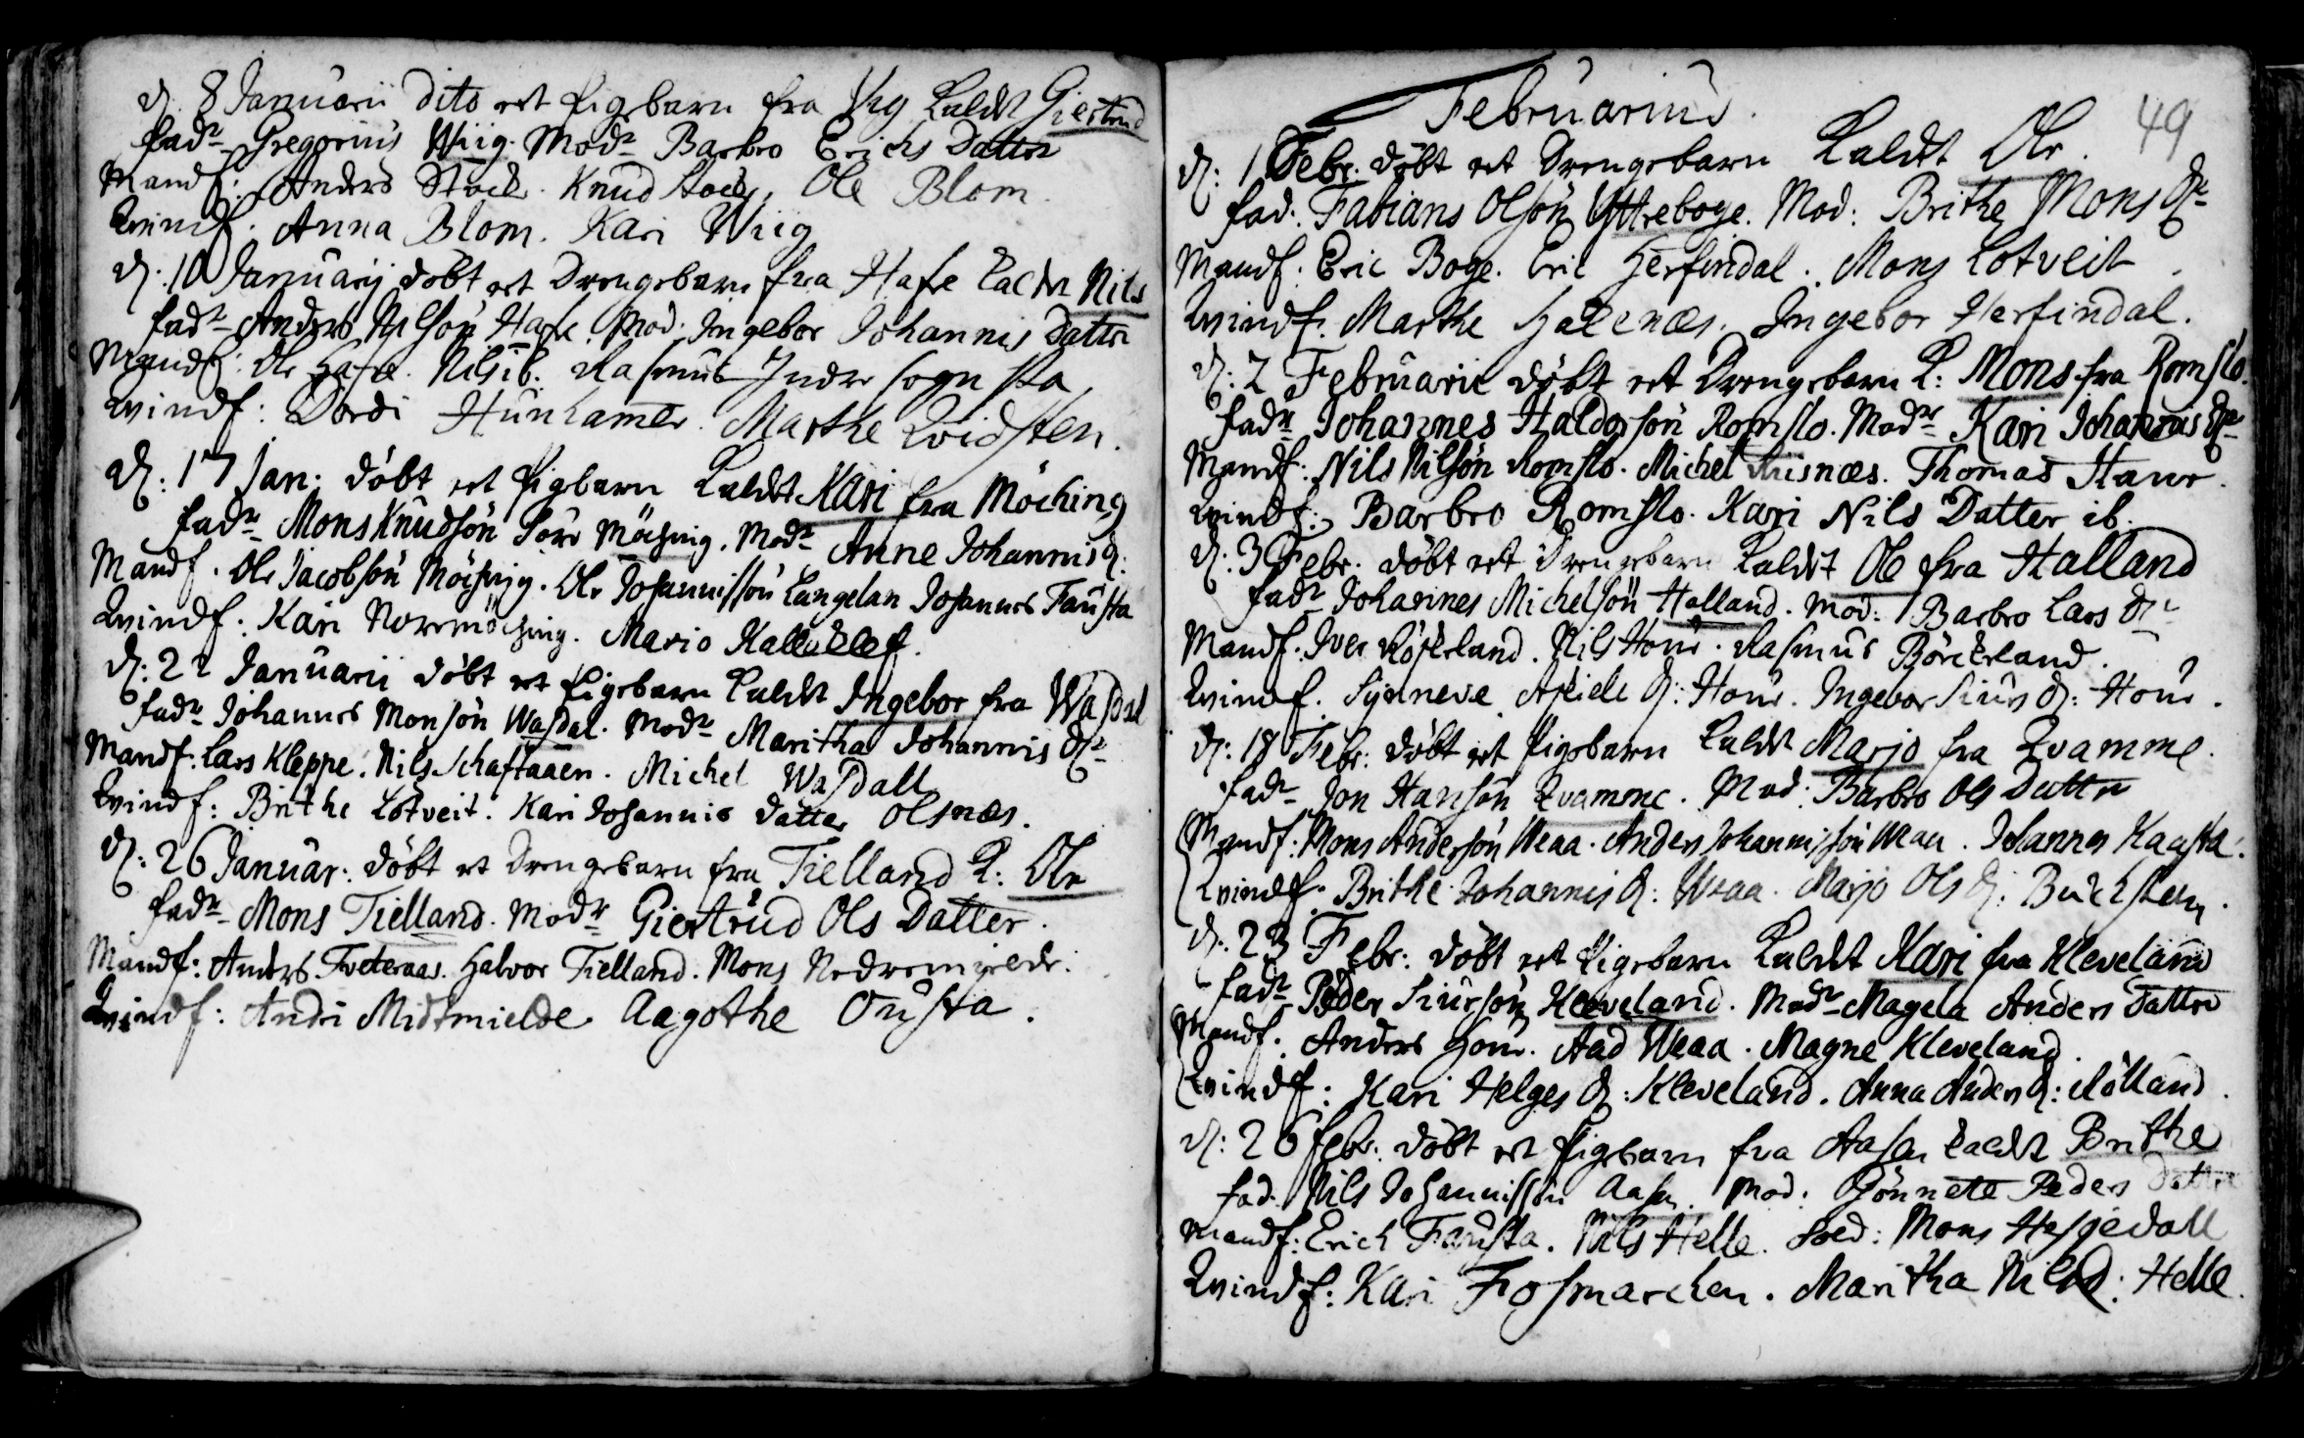 d. 8 Januarii dito et Pigebarn fra Vig kaldt Giertrud
fadr Gregorius Wiig. Modr Barbro Erichs Datter
Mandf: Anders Stock. Knud Stock, Ole Blom.
Qvindf. Anna Blom. Kari Wiig
d. 10 Januarij döbt et Drengebarn fra Hafe kaldt Nils
fadr Anders Nilsön Hafe. Mod. Ingebor Johannis Datter
Mandf: Ole Hafe. Nils ib. Rasmus Indre
Qvindf: Dordi Hunhamer. Marthe Qvidsten.
d: 17 Jan: döbt et Pigbarn kaldt Kari fra Möching
fadr Mons Knudsön Möching. Modr Anne Johannis d:
Mandf. Ole Jacobsön Möching. Ole Johannissön Langelan Johannes Fausta
Qvindf: Kari Norrmöching. Mario Kalleklef.
d: 22 Januarii döbt et Pigebarn kaldt Ingebor fra Wasdal
fadr Johannes Monsön Wasdal. Modr Maritha Johannis dr
Mandf: Lars Kleppe. Nils Schaftaaen. Michel Wasdall
Qvindf: Brithe Lotveit. Kari Johannis datter Olsnæs.
d: 26 Januar: döbt et Drengebarn fra Tielland k: Ole
fadr Mons Tielland. Modr Giertrüd Ols Datter.
Mandf: Anders Tveteraas. Halvor Tielland. Mons
Qvindf: Andri Midtmielde Aagothe Ousta.
Februarius.
49
d: 1 Febr. döbt et Drengebarn kaldt Ole.
fad: Fabians Olsön Yttreboge. Mod: Brithe Mons dr
Mandf: Eric Boge. Eric Herfindal. Mons Lotveit.
Qvindf. Marthe Halenæs. Ingebor Herfindal.
d: 2 Februarii döbt et Drengebarn k: Mons fra Romslo.
fadr Johannes Haldorsön Romslo. Modr Kari Johannis dr
Mandf: Nils Nilsön Romslo. Michel Riisnæs. Thomas Haur.
Qvindf: Barbro Romslo. Kari Nils Datter ib.
d: 3 Febr. döbt et Drengebarn kaldt Ole fra Halland
fadr Johannes Michelsön Halland. Mod: Barbro Lars dr
Mandf. Iver Röskeland. Nils Houe. Rasmus Börckeland.
Qvindf. Synneve d: Houe. Ingebor Siurs d: Houe.
d: 18 Febr: döbt et Pigebarn kaldt Marjo fra Qvamme.
fadr Jon Hansön Qvamme. Mod: Barbro Ols Datter
Mandf: Mons Andersön Weaa. Anders Johannissön Weaa. Johannes Kaasta.
Qvindf. Brithe Johannis d: Weaa. Marjo Ols d:
d: 23 Febr: döbt et Pigebarn kaldt Kari fra Kleveland
fadr Peder Siursön Kleveland. Modr Magela Anders Datter
Mandf. Anders Houe. Aad Weaa. Magne Kleveland.
Qvindf: Kari Helges d: Kleveland. Anna Anders d: Rölland.
d: 26 febr. döbt et Pigebarn fra Aasen kaldt Brithe
fad. Nils Johannissön Aasen. Mod: Gönnete Peders Datter
Mandf: Erich Fausta. Nils Helle. Soed: Mons Hesjedall
Qvindf: Kari Fosmarchen. Maritha Nilsd: Helle.